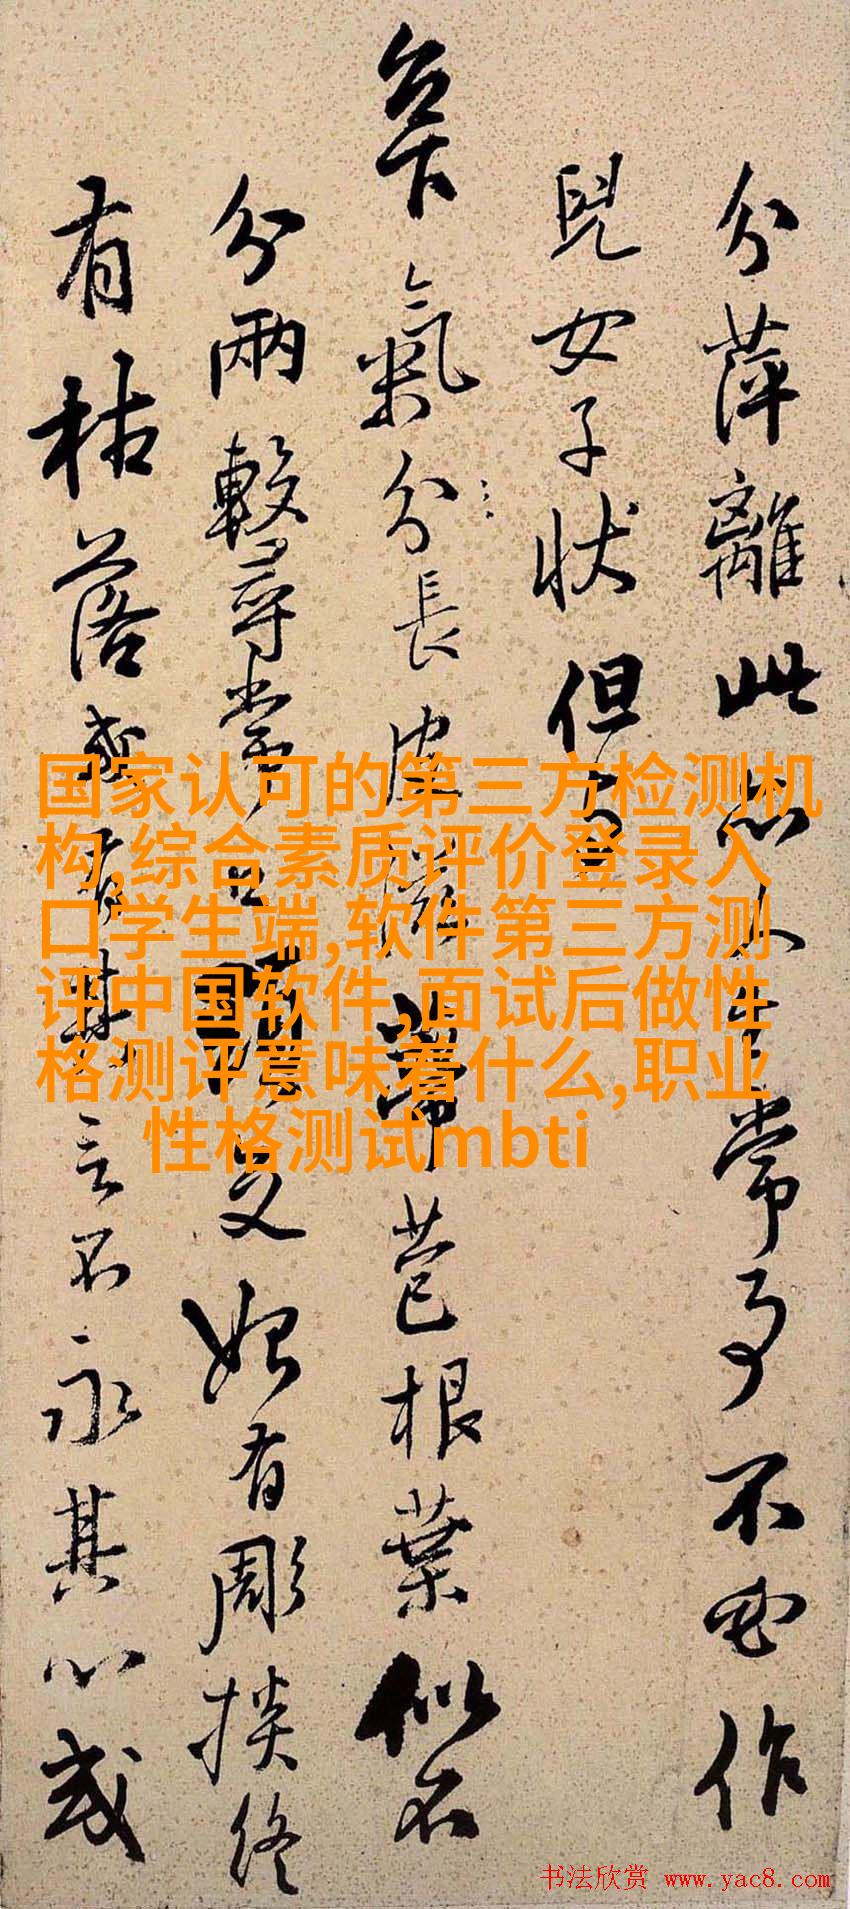 分萍離此亦人生常事不必作
兒女子状但
氣分長皮
帶苞根葉似不
分兩
尋常
更如有彫掞終
有枯落或有其
言不永其心或
国家认可的第三方检测机
构,综合素质评价登录入
口学生端,软件第三方测
评中国软件,面试后做性
格测评意味着什么,职业
性格测试mbti
书法欣赏 www.yac8.com